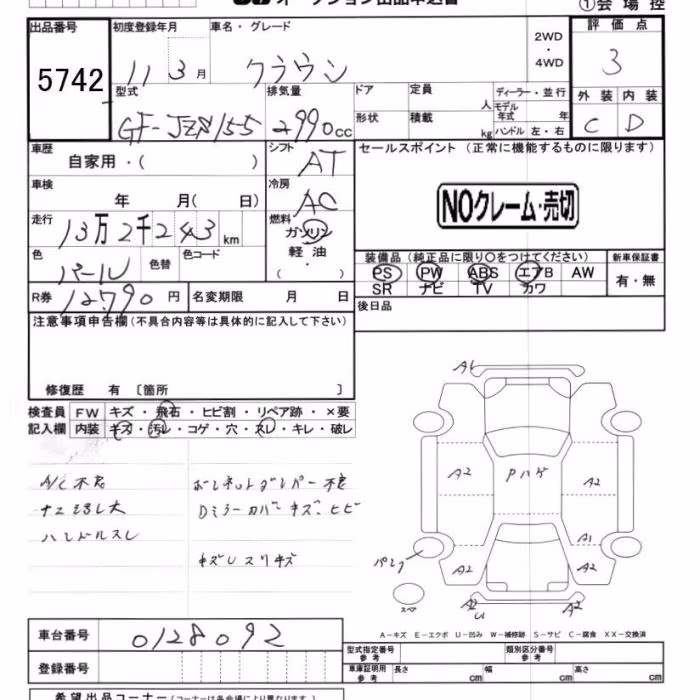 オークション出品申込書
①会場控
出品番号 初度登録年月 車名・グレード 2WD ・ 4WD 評価点
5742 11年3月 クラウン 3
型式 排気量 ドア 定員 人 ディーラー・並行
GF-JZS155 2990cc 形状 積載 kg モデル年式 年 ハンドル 左・右
外装 内装
C D
車歴 自家用・( ) シフト AT
セールスポイント (正常に機能するものに限ります)
車検 年 月( 日) 冷房 AC
NOクレーム・売切
走行 13万2千243km 燃料 ガソリン 軽油 ( ・ )
色 パール 色替 色コード
装備品 (純正品に限り○をつけてください) 新車保証書
PS PW ABS エアB AW 有・無
SR ナビ TV カワ
R券 12790円 名変期限 月 日
後日品
注意事項申告欄(不具合内容等は具体的に記入して下さい)
修復歴 有 〔箇所 〕
検査員 FW キズ・飛石・ヒビ割・リペア跡・×要
記入欄 内装 キズ・汚レ・コゲ・穴・スレ・キレ・破レ
A/C不良 ボンネットダンパー不良
Dミラーカバーキズ、ヒビ
ハンドルスレ
キズUスリキズ
A1
A2 Pハゲ A2
A1
パンク A2 A2
スペア A2 U A2
A-キズ E-エクボ U-凹み W-補修跡 S-サビ C-腐食 XX-交換済
車台番号 0128092
登録番号
型式指定番号 参考 類別区分番号 参考
車庫証明用 参考 長さ cm 幅 cm 高さ cm
希望出品コーナー(コーナーは各会場により異なります)